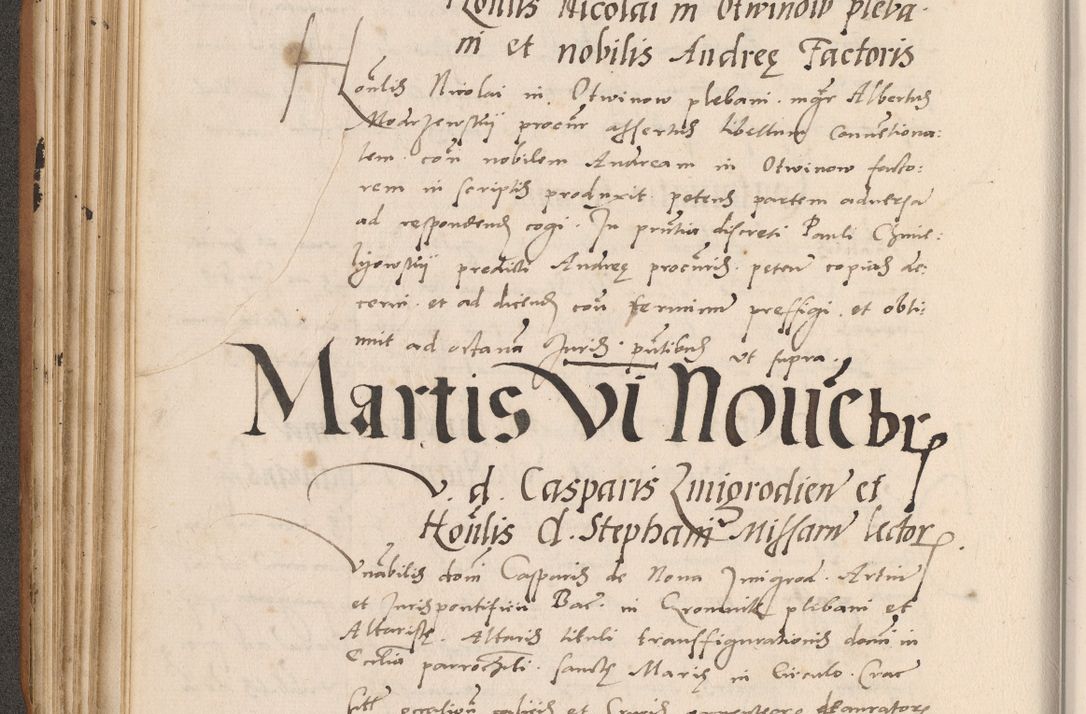 Honlis Nicolai in Otwinow pleba-
ni et nobilis Andreę Factoris
Honlis Nicolai in Otwinow plebani. mgr Albertus
Modrzewskij procur assertus libellum conuentiona:
lem. con nobilem Andream in Otwinow facto:
rem in scriptis produxit petens partem aduersa
ad respondend cogi. In pntia discreti Pauli Chmie:
lijowskij predicti Andreę procuris. peten copias de:
cerni. et ad dicend con terminum prefligi. et obti:
nuit ad octauam Juris. pntibus ut supra.
Martis VI Nouebr
V. d. Casparis Zmigrodien et
Honlis d. Stephani Missarum lector.
Vnabilis domi Casparis de Noua Zmigrod. Artium
et Juris pontificii Bac. in plebani et
Altaristę. Altaris tituli transfigurationis domi in
Ecclia parrochiali. sanctę Marię in Circulo. Crac
calicis et Crucis deauratore